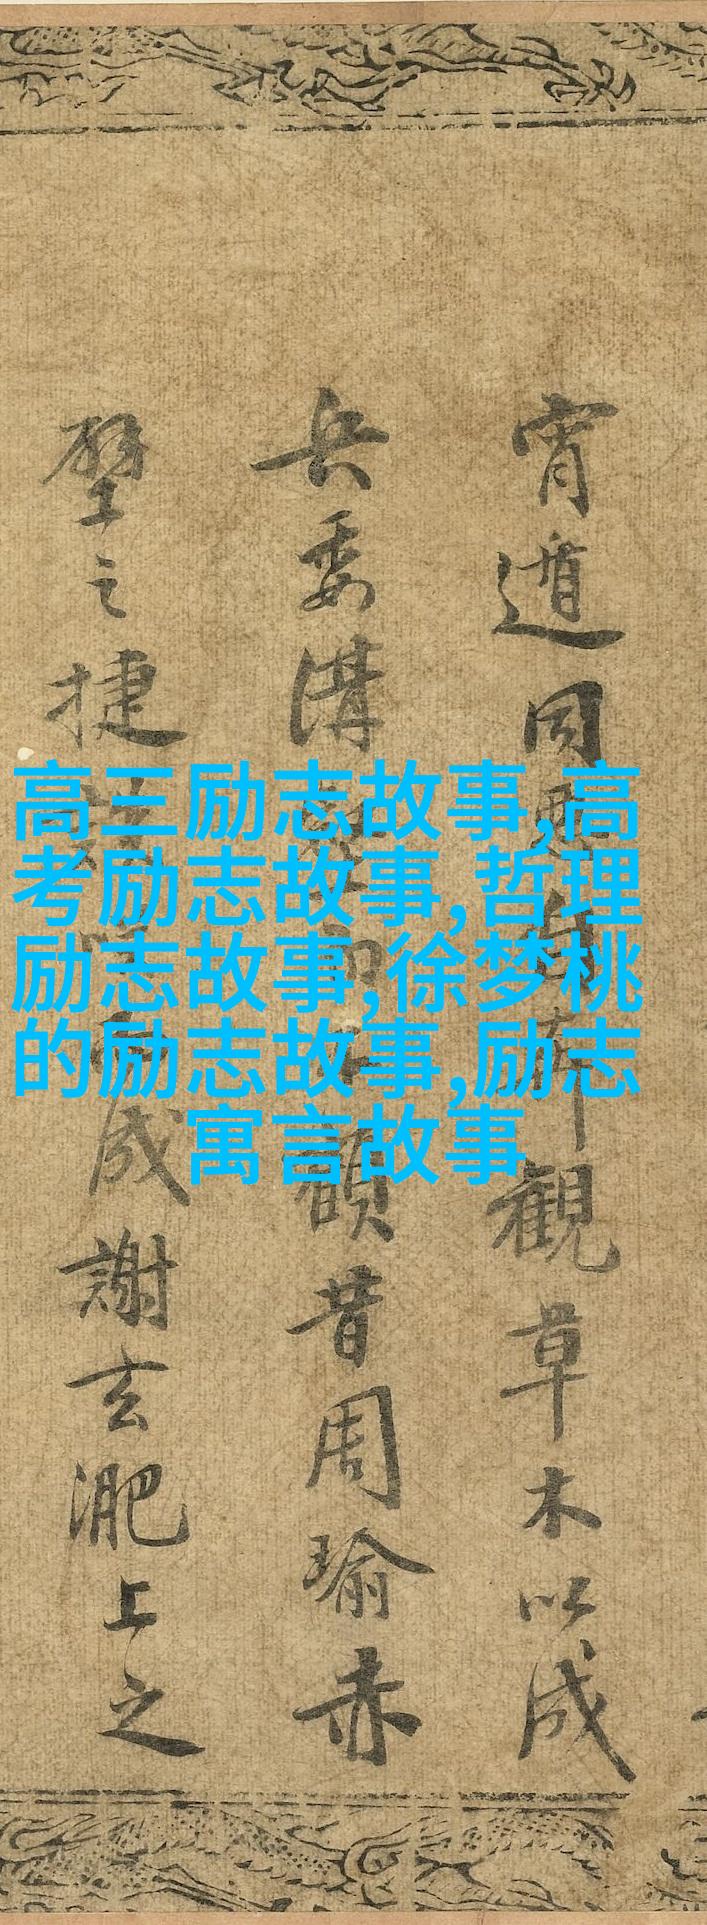 高三励志故事,高
考励志故事,哲理
励志故事,徐梦桃
的励志故事,励志
寓言故事
宵遁同奔觀草木以成
兵委溝顧昔周瑜赤
壁之捷成謝玄淝上之